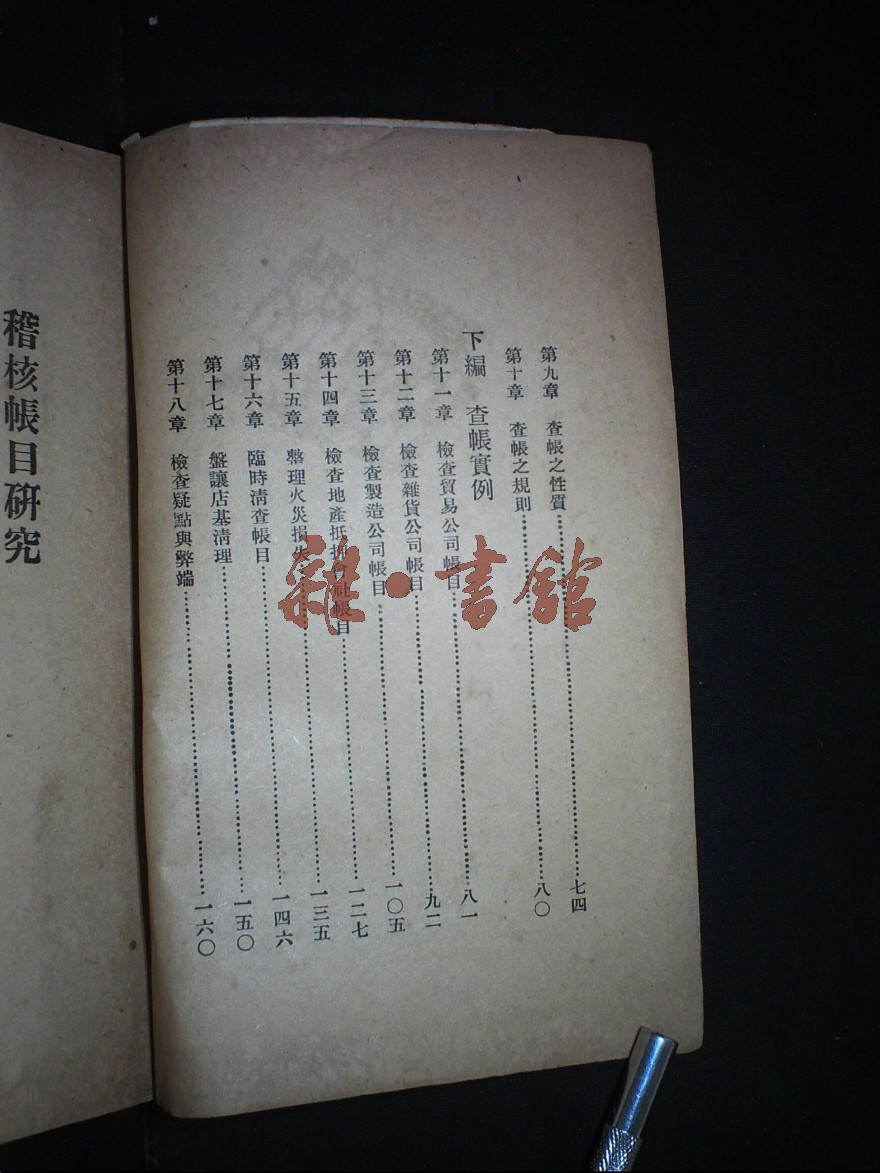 第九章 查帳之性質…………七四
第十章 查帳之規則…………八〇
下編 查帳實例
第十一章 檢查貿易公司帳目…………八一
第十二章 檢查雜貨公司帳目…………九二
第十三章 檢查製造公司帳目…………一〇五
第十四章 檢查地產抵押會社帳目…………一二七
第十五章 整理火災損失…………一三五
第十六章 臨時清查帳目…………一四六
第十七章 盤讓店基清理…………一五〇
第十八章 檢查疑點與弊端…………一六〇
稽核帳目研究
雜·書館